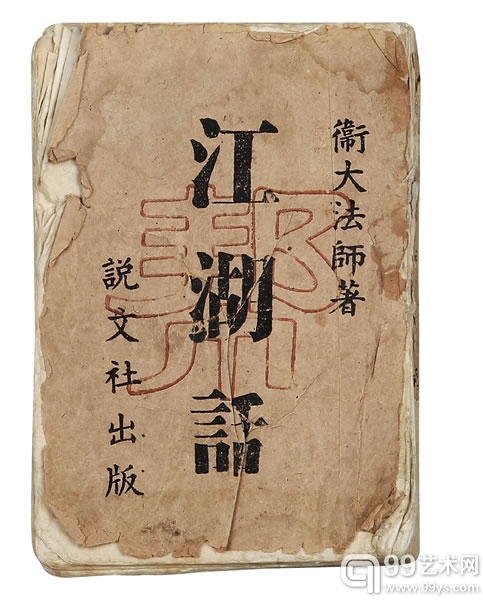 衞大法師著
江湖話
説文社出版
幫
99艺术网
www.99ys.com